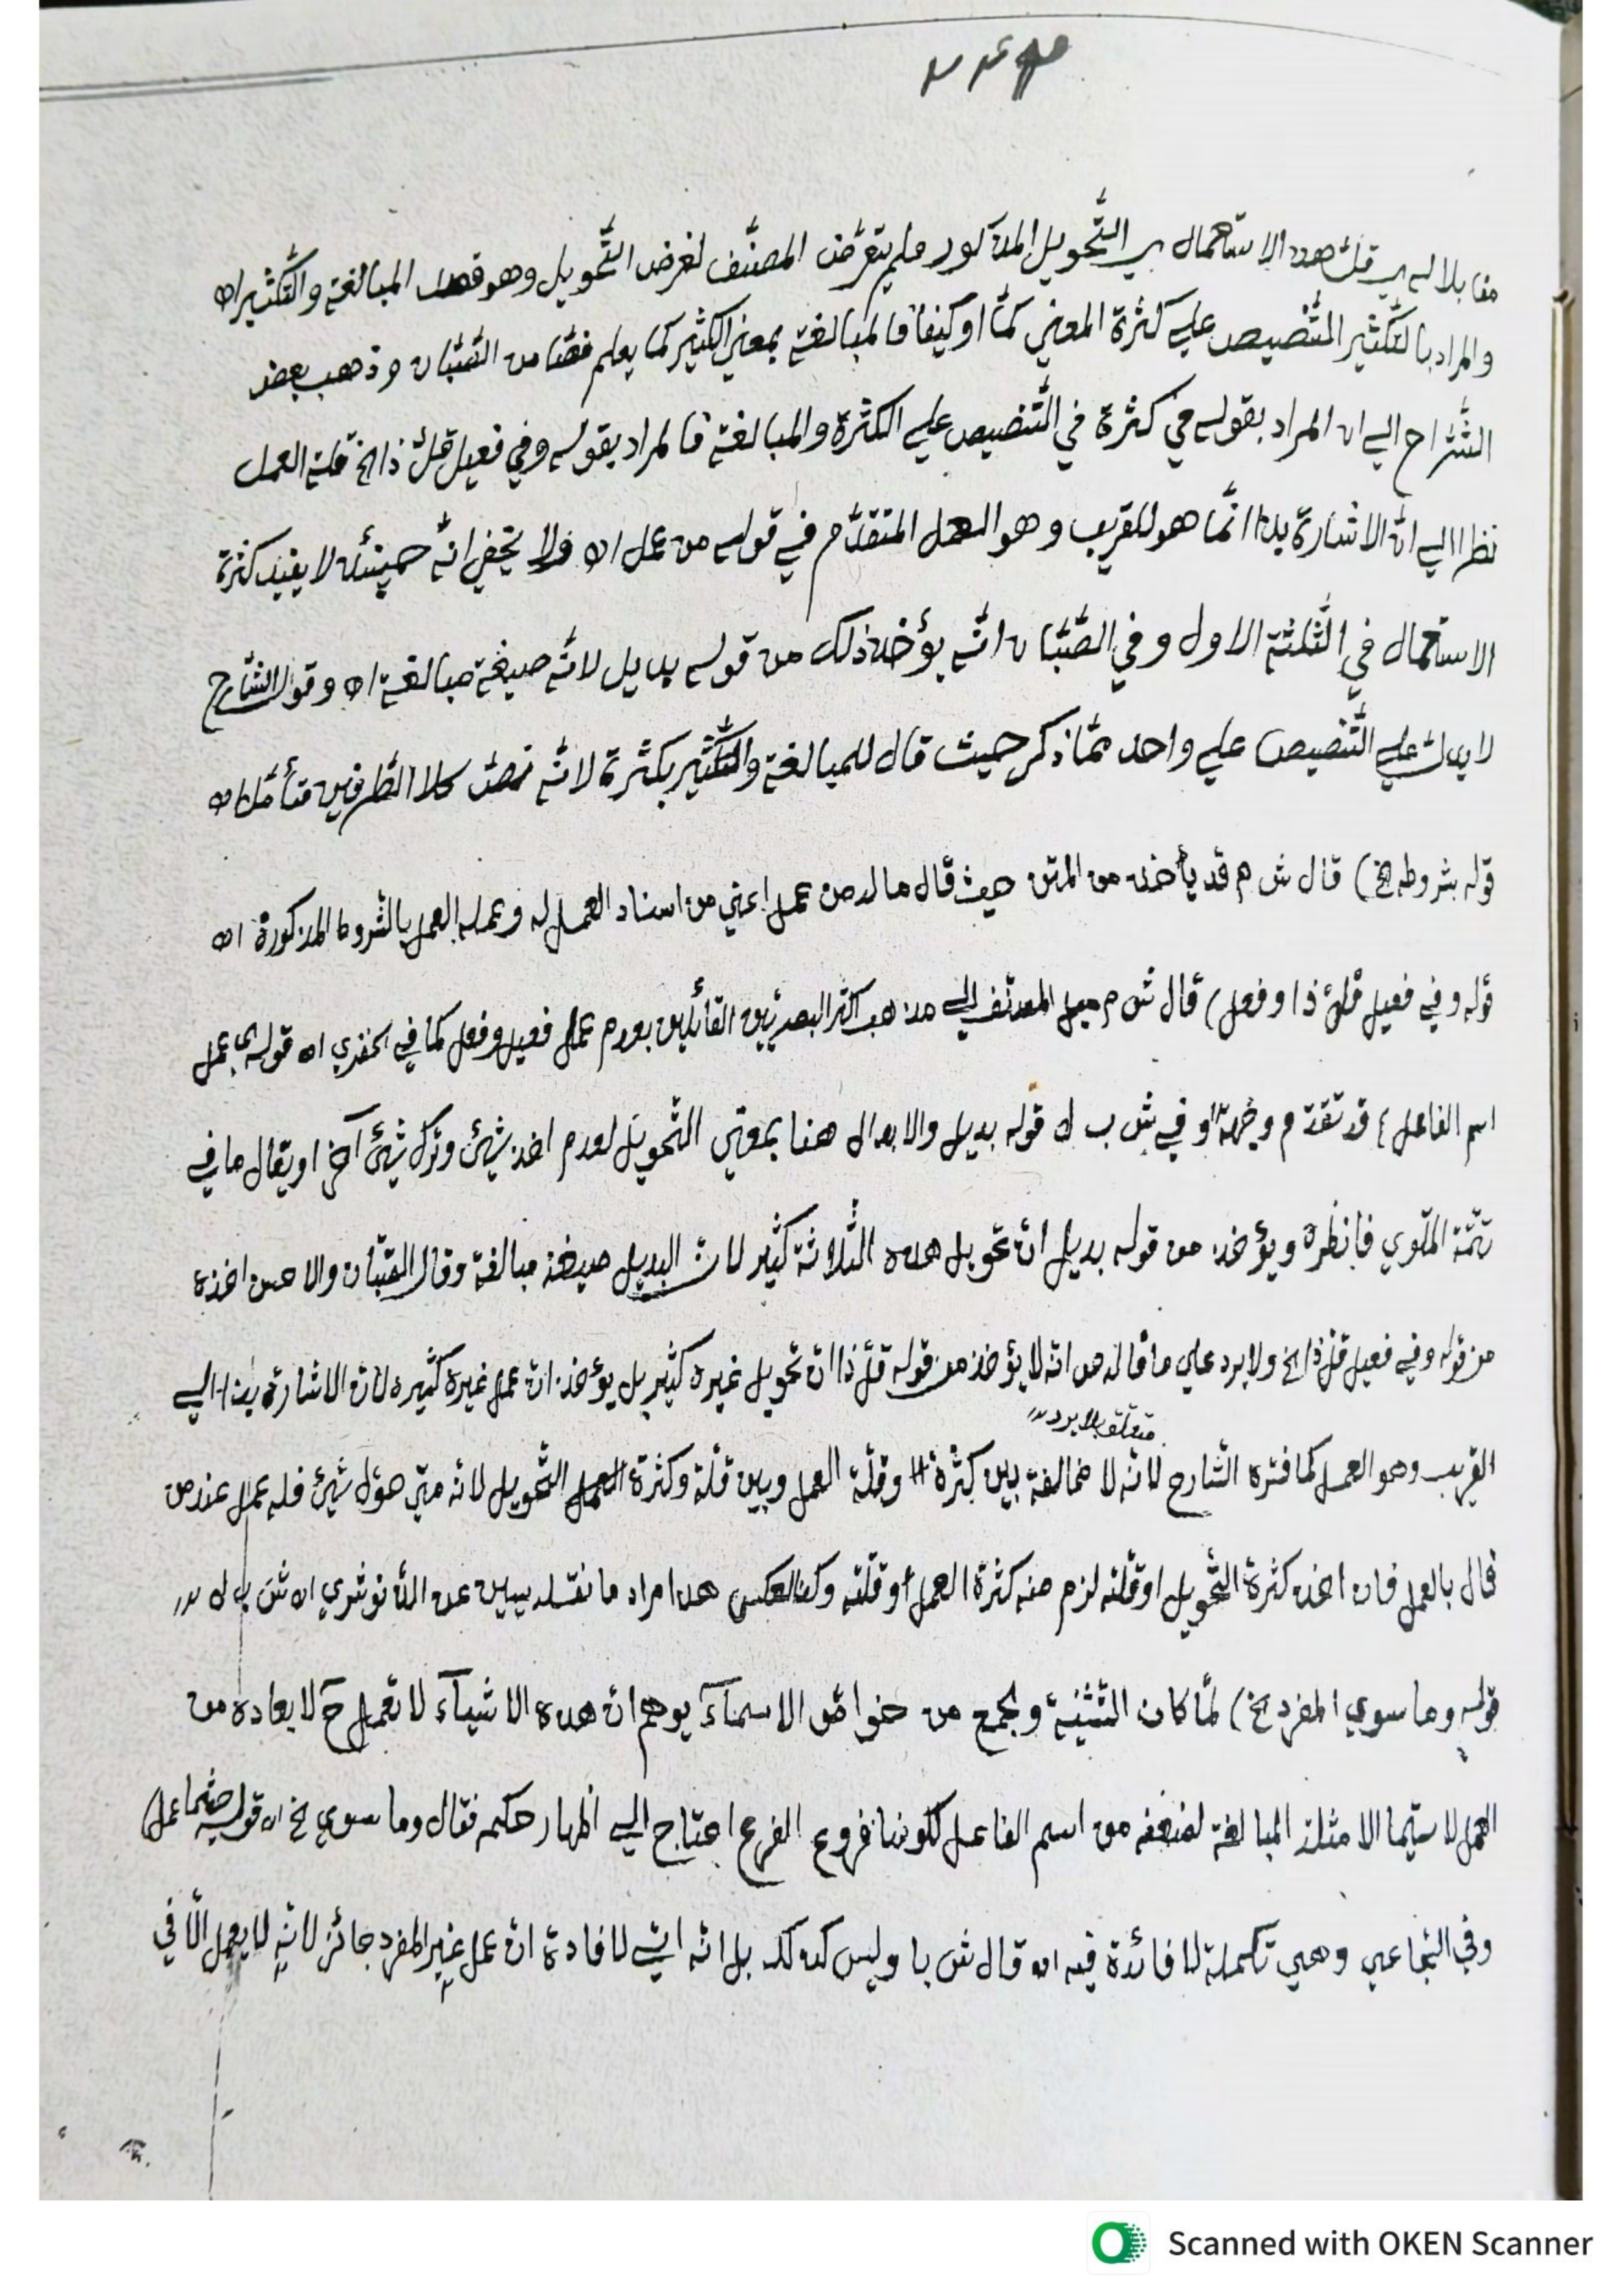 مقابلا له اي قل هذا الاستعمال اي التّحويل المذكور ولم يتعرّض المصنّف لغرض التّحويل وهو قصد المبالغة والتّكثير اه
والمراد بالتّكثير التّنصيص علي كثرة المعني كمّا او كيفا فالمبالغة بمعني التكثير كما يعلم من الصّبّان وذهب بعض
الشّراح الي ان المراد بقوله في كثرة في التّنصيص علي الكثرة والمبالغة فالمراد بقوله وفي فعيل قلّ ذا الخ قلة العمل
نظرا الي انّ الاشارة بذا انّما هو للقريب وهو العمل المتقدّم في قوله من عمل اه ولا يخفي انّه حينئذ لا يفيد كثرة
الاستعمال في الثّلثة الاول وفي الصّبّان انّه يؤخذ ذلك من قوله بديل لانّه صيغة مبالغة اه وقول الشّارح
لا يدلّ علي التّنصيص علي واحد ممّا ذكر حيث قال للمبالغة والتّكثير بكثرة لانّه كلا الطّرفين فتأمّل اه
قوله بشروطه الخ) قال ش م قد يأخذ من المتن حيث قال ما له من عمل اعني من اسناد العمل له وعمله العمل بالشّروط المذكورة اه
قوله وفي فعيل قلّ ذا وفعل) قال ش م ميل المصنّف الي مذهب اكثر البصريّين القائلين بعدم عمل فعيل وفعل كما في الخضري اه قوله اي عمل
اسم الفاعل) قد تقدّم وفي ش ب ل قوله بديل والابدال هنا بمعني التّحويل لعدم اخذ شيئ وترك شيئ آخر او يقال ما في
تتمّة الملّوي فانظره ويؤخذ من قوله بديل انّ تحويل هذه الثّلاثة كثير لانّ البديل صيغة مبالغة وقال الصّبّان والاحسن اخذه
من قوله وفي فعيل قلّ ذا الخ ولا يرد علي ما قاله من انّه لا يؤخذ من قوله قلّ ذا انّ تحويل غيره كثير بل يؤخذ انّ عمل غيره كثيره لانّ الاشارة بذا الي
متعلّق بلا يرد
القريب وهو العمل كما فسّره الشّارح لانّه لا مخالفة بين كثرة وقلّة العمل وبين قلّة وكثرة العمل التّحويل لانّه متي حوّل شيئ فله عمل عند من
قال بالعمل فان اخذ كثرة التّحويل او قلّته لزم منه كثرة العمل او قلّته وكذا العكس هذا مراد ما نقله يسين عن الدّنوشري اه ش ب ل
قوله وما سوي المفرد الخ) لمّا كان التّثنية والجمع من خواصّ الاسمآء يوهم انّ هذه الاشيآء لا تعمل ح لابعاده من
العمل لا سيّما الامثلة المبالغة لضعفه من اسم الفاعل لكونها فروع الفرع احتاج الي اظهار حكمه فقال وما سوي الخ اه قوله حيثما عمل)
وفي الشّجاعي وهي تكملة لا فائدة فيه اه قال ش با وليس كذلك بل انّه اتي لافادة انّ عمل غير المفرد جائز لانّه لا يعمل الّا في
Scanned with OKEN Scanner